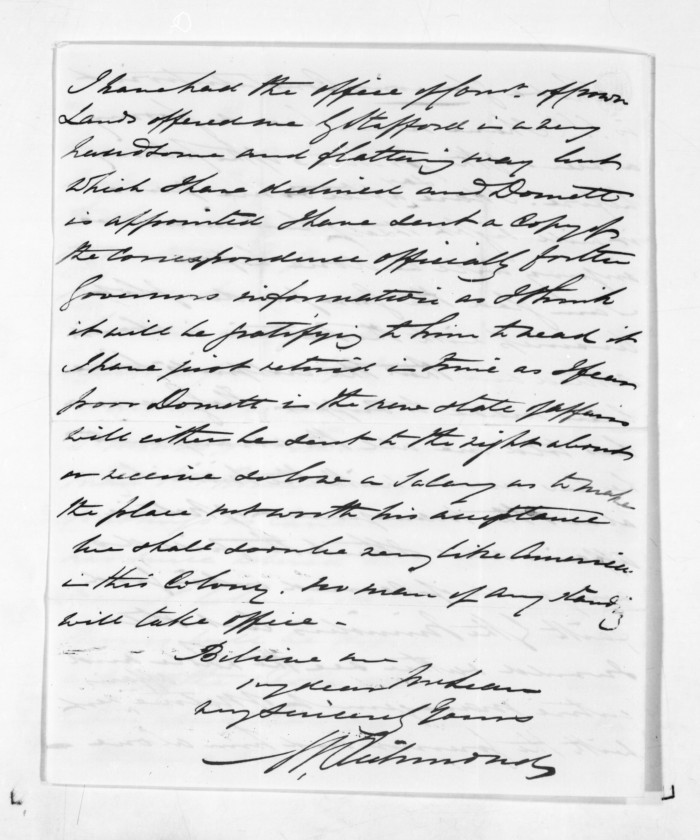 I have had the office of Comr. of Crown
Lands offered me by Stafford in a very
handsome and flattering way but
which I have declined and Domett
is appointed I have sent a copy of
the correspondence officially for the
Governors information as I think
it will be gratifying to him to read it
I have just retired in time as I fear
poor Domett in the new state of affairs
will either be sent to the right abouts
or receive so low a Salary as to make
the place not worth his acceptance
We shall soon be very like America
in this Colony. no man of any standing
will take office -
Believe me
my dear McLean
very sincerely Yours
Richmond